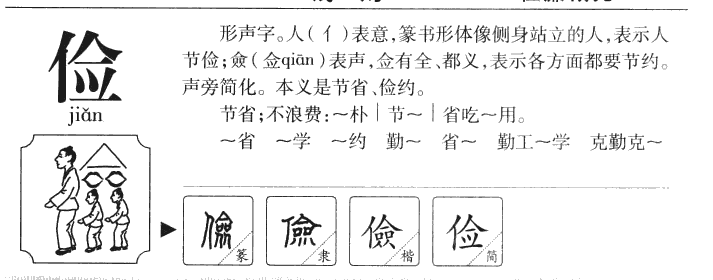 俭
jiǎn
形声字。人(亻)表意,篆书形体像侧身站立的人,表示人
节俭;僉(佥qiān)表声,佥有全、都义,表示各方面都要节约。
声旁简化。本义是节省、俭约。
节省;不浪费:～朴｜节～｜省吃～用。
～省 ～学 ～约 勤～ 省～ 勤工～学 克勤克～
儉篆 儉隶 儉楷 俭简